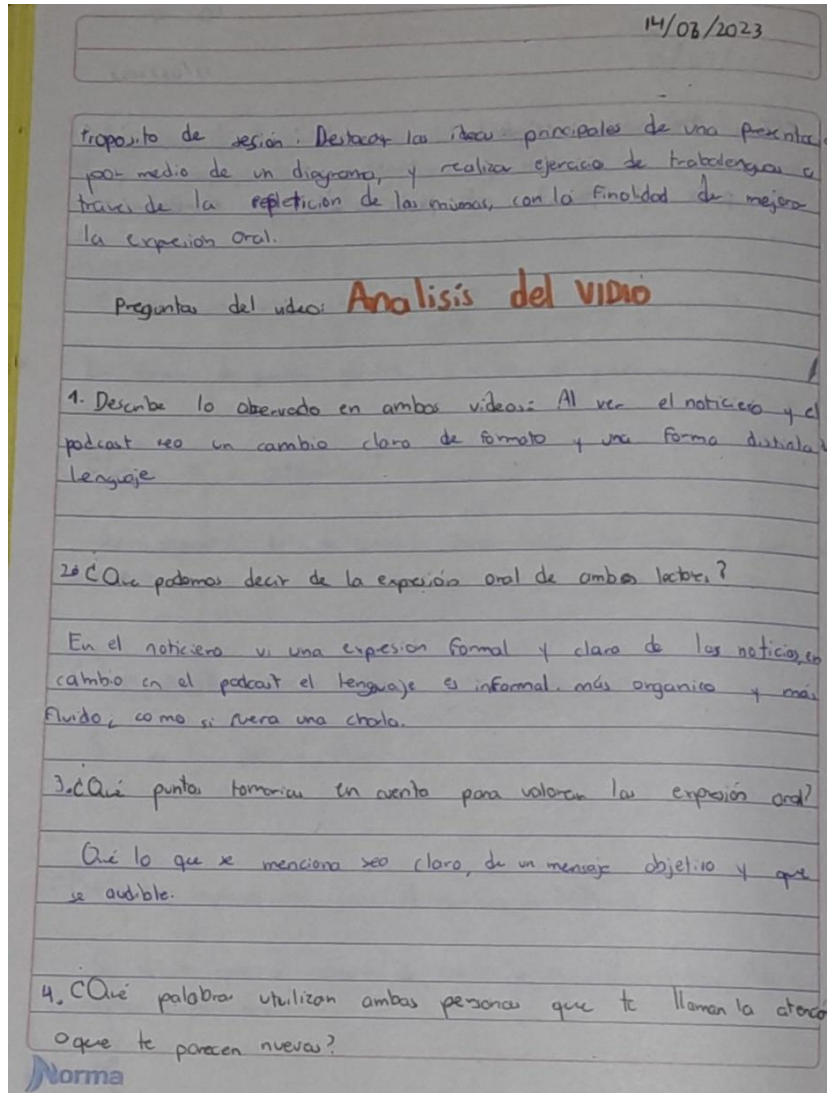 14/03/2023
Proposito de sesión: Destacar las ideas principales de una presentac
por medio de un diagrama, y realiza ejercicio de trabalenguas a
traves de la repletición de las mismas, con la finalidad de mejorar
la expresion oral.
Preguntas del video: Analisis del VIDIO
1. Describe lo observado en ambos videos: Al ver el noticiero y el
podcast veo un cambio claro de formato y una forma distinta
lenguaje
2. ¿Que podemos decir de la expresión oral de ambos lectores?
En el noticiero vi una expresion formal y clara de las noticias, en
cambio en el podcast el lenguaje es informal. más organico y más
fluido, como si fuera una charla.
3. ¿Qué puntos tomarias en cuenta para valorar las expresión oral?
Qué lo que se menciona sea claro, de un mensaje objetivo y que
se audible.
4. ¿Qué palabras utilizan ambas personas que te llaman la atenció
o que te parecen nuevas?
Norma